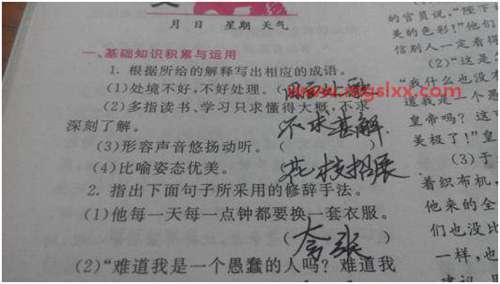 月 日 星期 天气
一、基础知识积累与运用
1. 根据所给的解释写出相应的成语。
(1)处境不好,不好处理。(
mgslxx.com
(2)多指读书、学习只求懂得大概,不求
深刻了解。 不求甚解
(3)形容声音悠扬动听。(
(4)比喻姿态优美。 花枝招展
2. 指出下面句子所采用的修辞手法。
(1)他每一天每一点钟都要换一套衣服。
(夸张)
(2)“难道我是一个愚蠢的人吗?难道我
的官员说,“陛下
美的色彩!”他们
信别人一定看得
(2)“这是
“我什么也没
道我是一个愚
皇帝吗?这
美极了!”皇
(3)于
着织布机,
他来的全
们也没比
一样,也